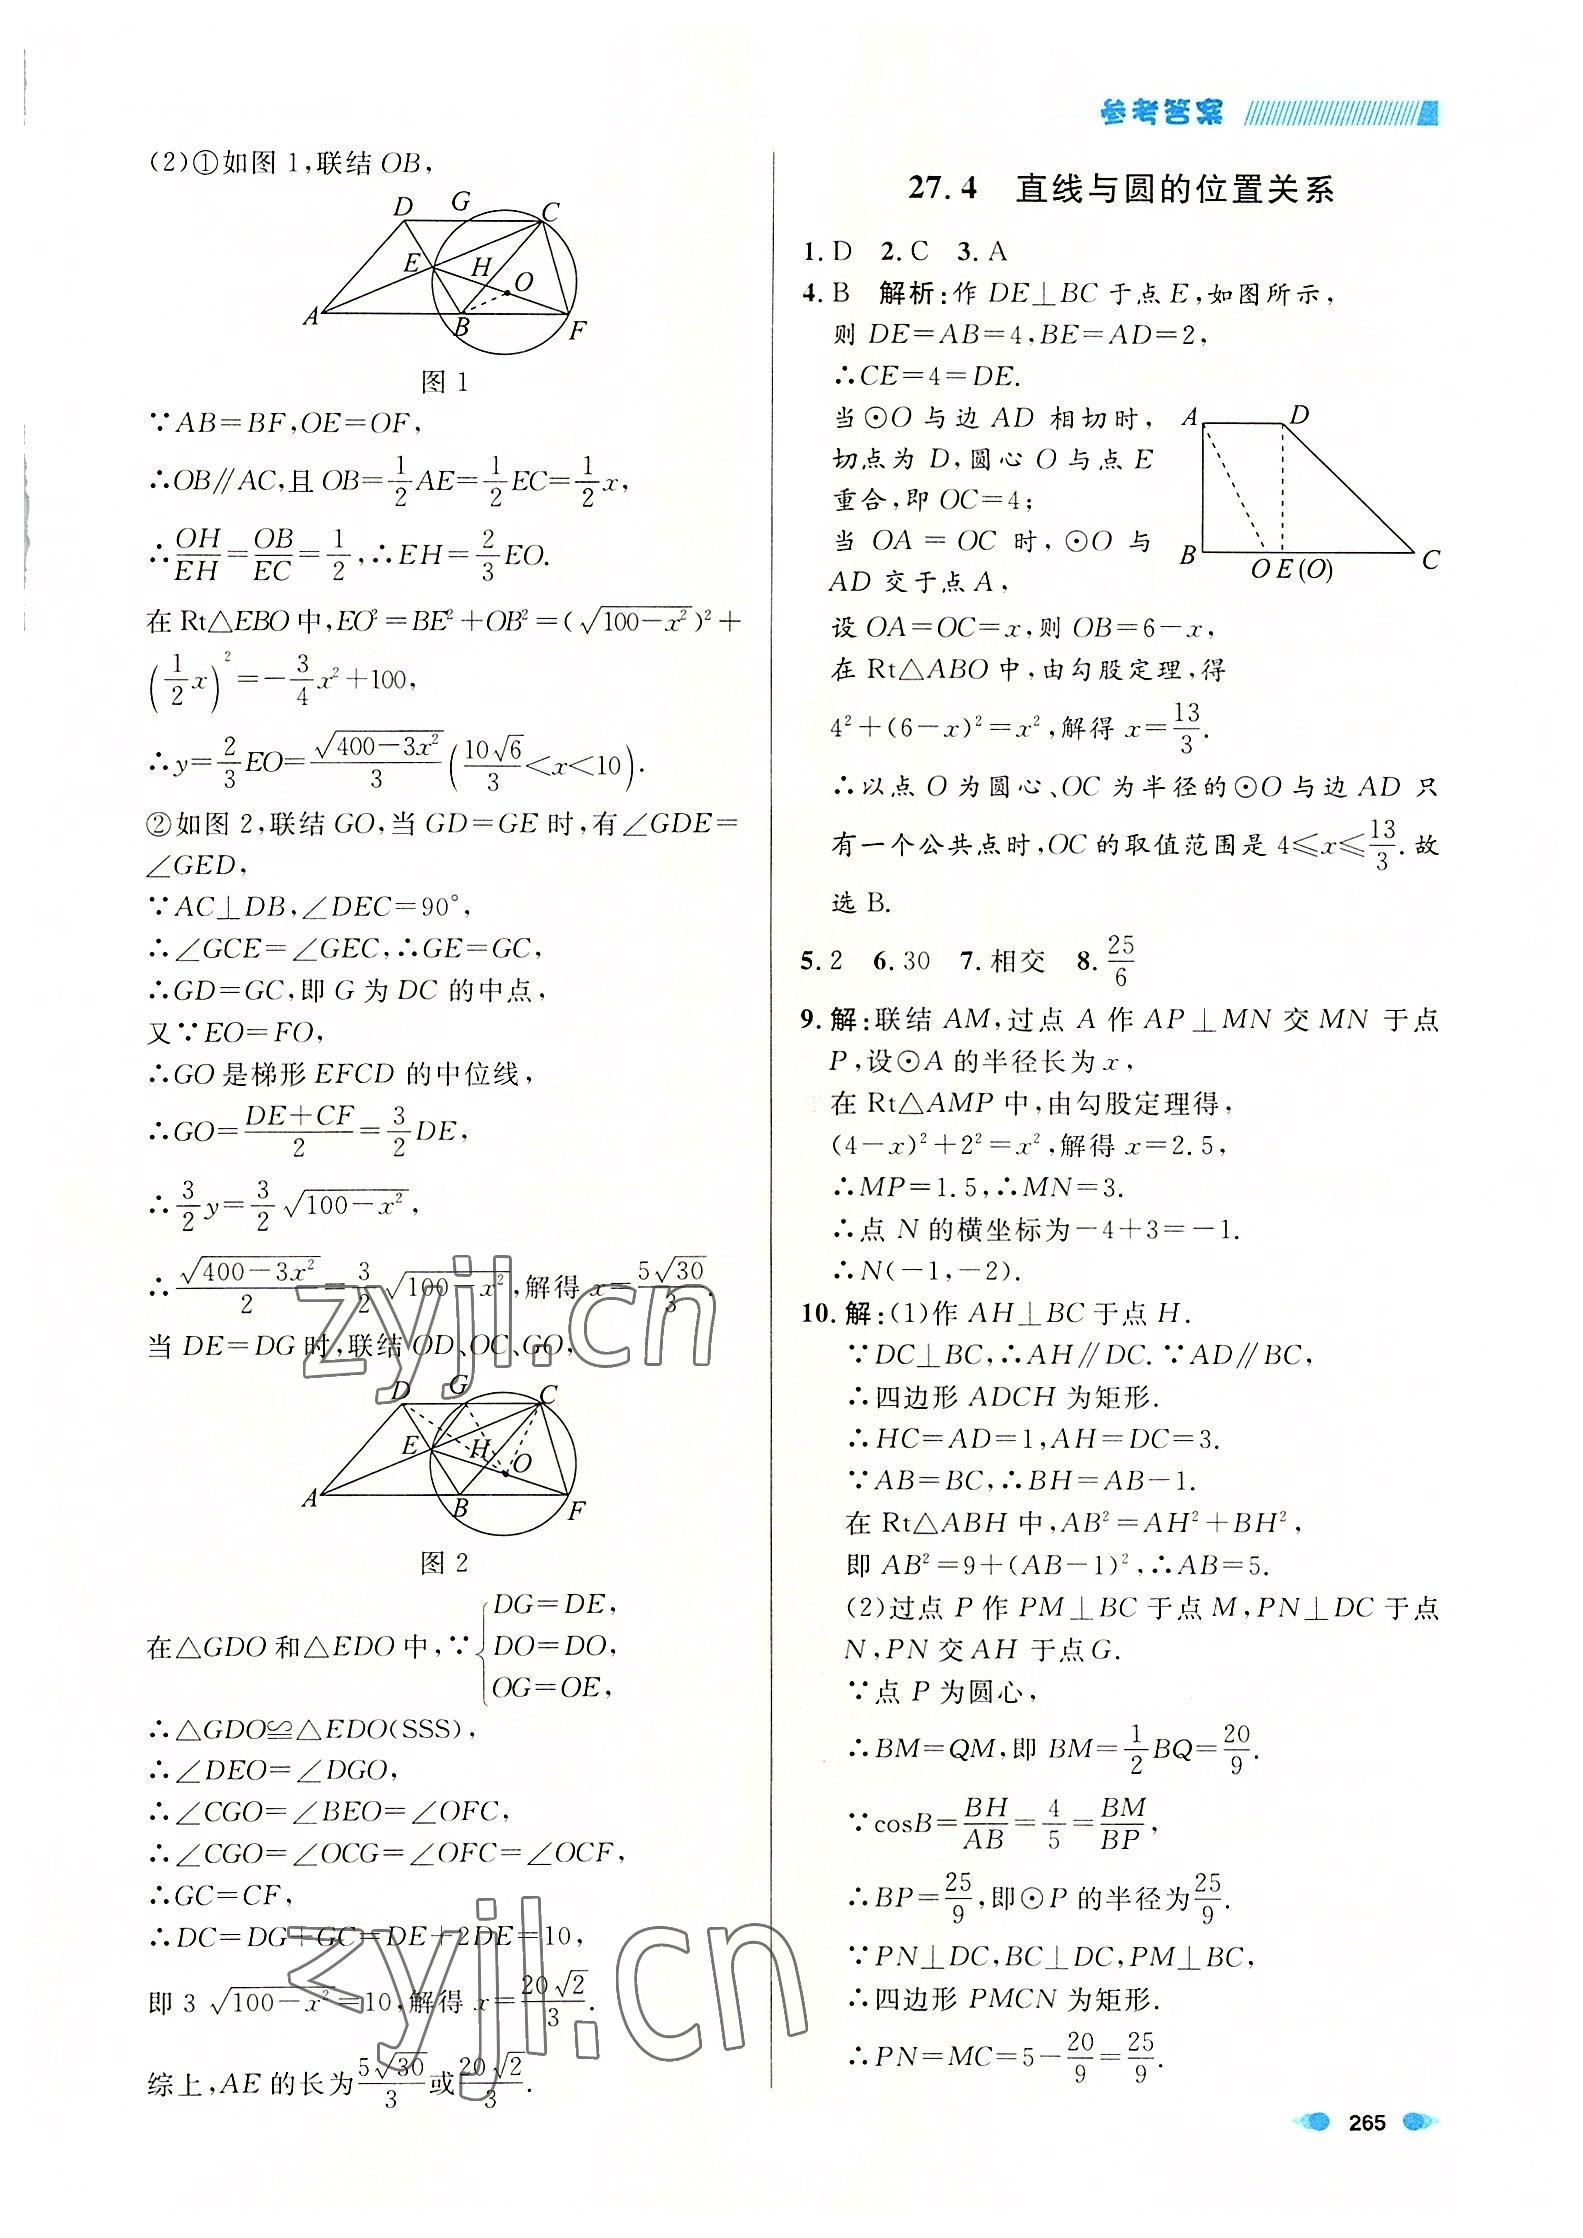 参考答案
(2)①如图 1,联结 OB,
D G C
E H O
A B F
图 1
∵AB=BF,OE=OF,
∴OB∥AC,且 OB=1/2AE=1/2EC=1/2x,
∴OH/EH=OB/EC=1/2,∴EH=2/3EO.
在 Rt△EBO 中,EO²=BE²+OB²=(√(100-x²))²+
(1/2x)²=-3/4x²+100,
∴y=2/3EO=√(400-3x²)/3(10√6/3<x<10).
②如图 2,联结 GO,当 GD=GE 时,有∠GDE=
∠GED,
∵AC⊥DB,∠DEC=90°,
∴∠GCE=∠GEC,∴GE=GC,
∴GD=GC,即 G 为 DC 的中点,
又∵EO=FO,
∴GO 是梯形 EFCD 的中位线,
∴GO=(DE+CF)/2=3/2DE,
∴3/2y=3/2√(100-x²),
∴√(400-3x²)/2=3/2√(100-x²),解得 x=5√30/3.
当 DE=DG 时,联结 OD、OC、GO,
D G C
E H O
A B F
图 2
在△GDO 和△EDO 中,∵{DG=DE,
DO=DO,
OG=OE,
∴△GDO≌△EDO(SSS),
∴∠DEO=∠DGO,
∴∠CGO=∠BEO=∠OFC,
∴∠CGO=∠OCG=∠OFC=∠OCF,
∴GC=CF,
∴DC=DG+GC=DE+2DE=10,
即 3√(100-x²)=10,解得 x=20√2/3.
综上,AE 的长为5√30/3或20√2/3.
27.4 直线与圆的位置关系
1. D 2. C 3. A
4. B 解析:作 DE⊥BC 于点 E,如图所示,
则 DE=AB=4,BE=AD=2,
∴CE=4=DE.
当⊙O 与边 AD 相切时,
切点为 D,圆心 O 与点 E
重合,即 OC=4;
当 OA=OC 时,⊙O 与
AD 交于点 A,
A D
B O E(O) C
设 OA=OC=x,则 OB=6-x,
在 Rt△ABO 中,由勾股定理,得
4²+(6-x)²=x²,解得 x=13/3.
∴以点 O 为圆心、OC 为半径的⊙O 与边 AD 只
有一个公共点时,OC 的取值范围是 4≤x≤13/3.故
选 B.
5. 2 6. 30 7. 相交 8. 25/6
9. 解:联结 AM,过点 A 作 AP⊥MN 交 MN 于点
P,设⊙A 的半径长为 x,
在 Rt△AMP 中,由勾股定理得,
(4-x)²+2²=x²,解得 x=2.5,
∴MP=1.5,∴MN=3.
∴点 N 的横坐标为-4+3=-1.
∴N(-1,-2).
10. 解:(1)作 AH⊥BC 于点 H.
∵DC⊥BC,∴AH∥DC.∵AD∥BC,
∴四边形 ADCH 为矩形.
∴HC=AD=1,AH=DC=3.
∵AB=BC,∴BH=AB-1.
在 Rt△ABH 中,AB²=AH²+BH²,
即 AB²=9+(AB-1)²,∴AB=5.
(2)过点 P 作 PM⊥BC 于点 M,PN⊥DC 于点
N,PN 交 AH 于点 G.
∵点 P 为圆心,
∴BM=QM,即 BM=1/2BQ=20/9.
∵cosB=BH/AB=4/5=BM/BP,
∴BP=25/9,即⊙P 的半径为25/9.
∵PN⊥DC,BC⊥DC,PM⊥BC,
∴四边形 PMCN 为矩形.
∴PN=MC=5-20/9=25/9.
265
zyjl.cn
zyjl.cn